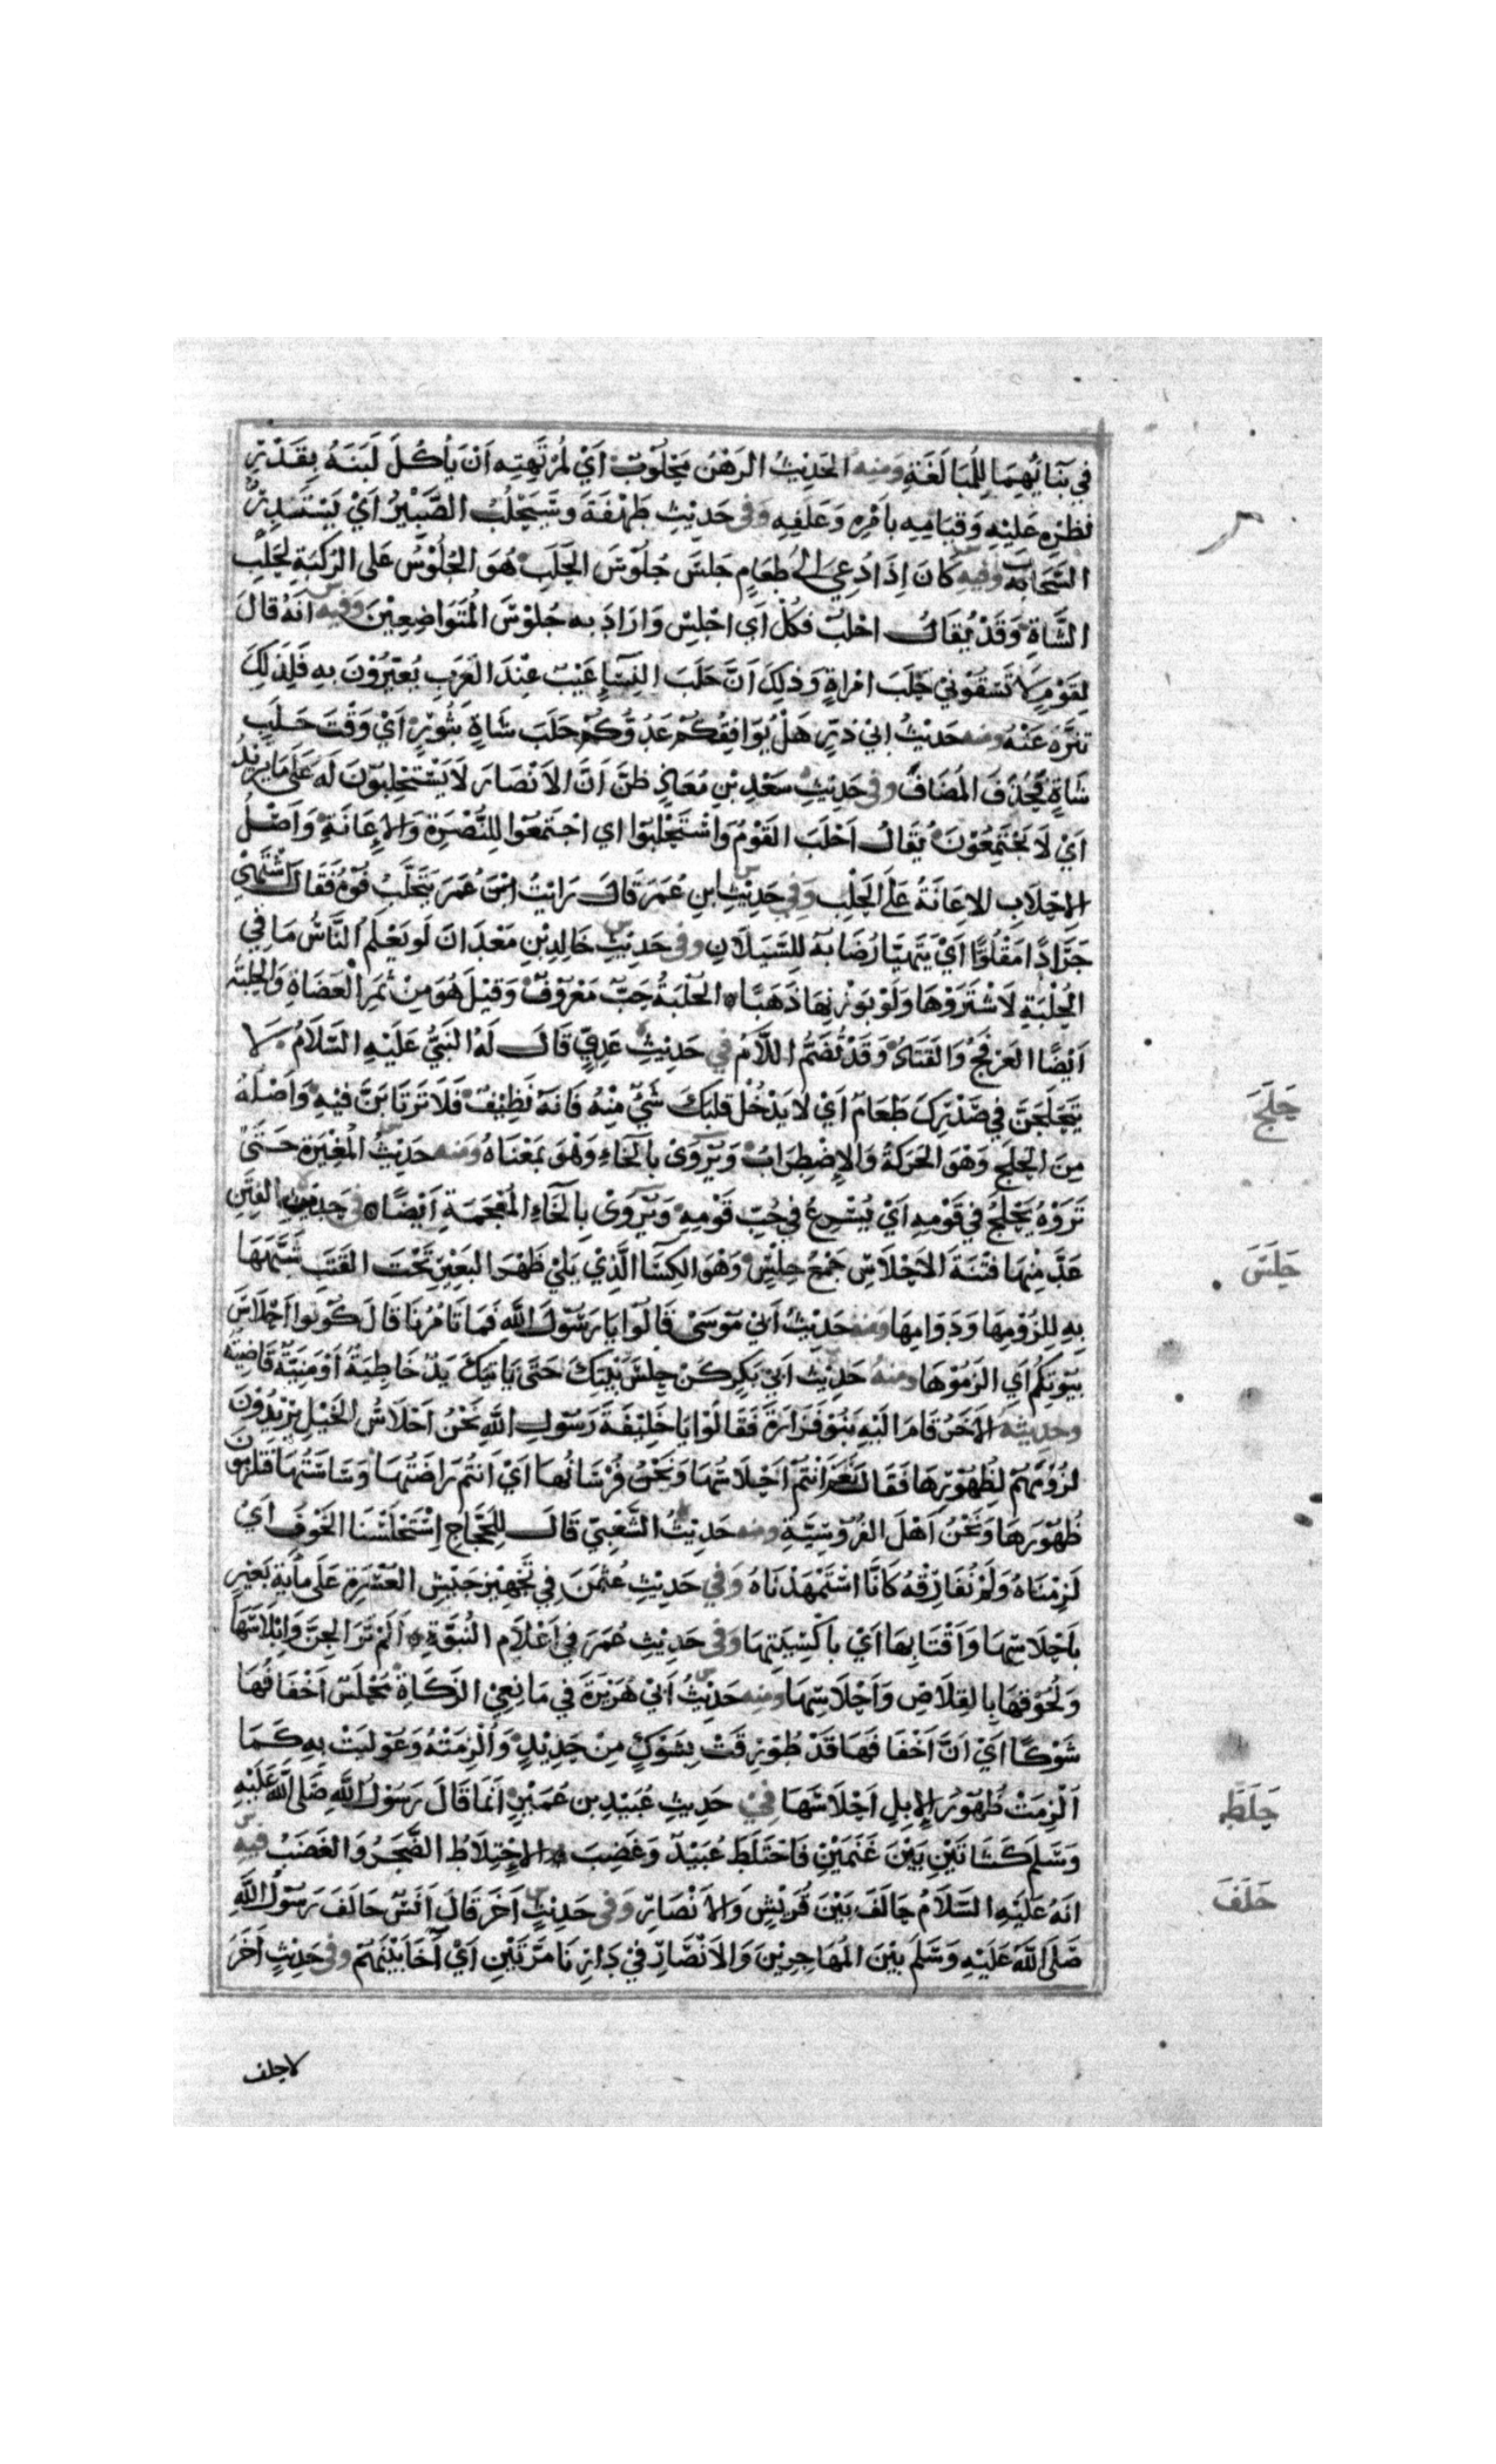 في بنائهما للمبالغة ومنه الحديث الرهن محلوب اي لمرتهنه ان ياكل لبنه بقدر
نظره عليه وقيامه بامره وعلفه وفي حديث طهفة ونستحلب الصبير اي نستدر
السحاب وفيه كان اذا دعي الى طعام جلس جلوس الحلب هو الجلوس على الركبة لحلب
الشاة وقد يقال احلب فكل اي اجلس واراد به جلوس المتواضعين وفيه انه قال
لقوم لا تسقوني حلب امراة وذلك ان حلب النساء عيب عند العرب يعيرون به فلذلك
تنزه عنه ومنه حديث ابي ذر هل يوافقكم عدوكم حلب شاة نثور اي وقت حلب
شاة فحذف المضاف وفي حديث سعد بن معاذ ظن ان الانصار لا يستحلبون له على ما يريد
اي لا يجتمعون يقال احلب القوم واستحلبوا اي اجتمعوا للنصرة والاعانة واصل
الاحلاب الاعانة على الحلب وفي حديث ابن عمر قال رايت ابن عمر يتحلب فوه فقال اشتهي
جرادا مقلوا اي يتهيا رضابه للسيلان وفي حديث خالد بن معدان لو يعلم الناس ما في
الحلبة لاشتروها ولو بوزنها ذهبا الحلبة حب معروف وقيل هو من ثمر العضاة والحلبة
ايضا العرفج والقتاد وقد تضم اللام في حديث عدي قال له النبي عليه السلام لا
يتحلجن في صدرك طعام اي لا يدخل قلبك شي منه فانه نظيف فلا ترتابن فيه واصله
من الحلج وهو الحركة والاضطراب ويروى بالخاء وهو بمعناه ومنه حديث المغيرة حتى
تروه يحلج في قومه اي يسرع في حب قومه ويروى بالخاء المعجمة ايضا في حديث الفتن
عد منها فتنة الاحلاس جمع حلس وهو الكسا الذي يلي ظهر البعير تحت القتب شبهها
به للزومها ودوامها ومنه حديث ابي موسى قالوا يا رسول الله فما تامرنا قال كونوا احلاس
بيوتكم اي الزموها ومنه حديث ابي بكر كن حلس بيتك حتى ياتيك يد خاطية او منية قاضية
وحديثه الاخر قام اليه بنو فزارة فقالوا يا خليفة رسول الله نحن احلاس الخيل يريدون
لزومهم لظهورها فقال نعم انتم احلاسها ونحن فرسانها اي انتم راضتها وساستها فتلزمون
ظهورها ونحن اهل الفروسية ومنه حديث الشعبي قال للحجاج استحلسنا الخوف اي
لزمناه ولم نفارقه كانا استمهدناه وفي حديث عثمن في تجهيز جيش العسرة على ماية بعير
باحلاسها واقتابها اي باكسيتها وفي حديث عمر في اعلام النبوة الم تر الجن وابلاسها
ولحوقها بالقلاص واحلاسها ومنه حديث ابي هريرة في مانعي الزكاة محلس اخفافها
شوكا اي ان اخفافها قد طورقت بشوك من حديد والزمته وعوليت به كما
الزمت ظهور الابل احلاسها في حديث عبيد بن عمير انما قال رسول الله صلى الله عليه
وسلم كشاتين بين غنمين فاحتلط عبيد وغضب الاحتلاط الضجر والغضب فيه
انه عليه السلام حالف بين قريش والانصار وفي حديث اخر قال انس حالف رسول الله
صلى الله عليه وسلم بين المهاجرين والانصار في دارنا مرتين اي آخا بينهم وفي حديث اخر
حلج
حلس
حلط
حلف
لا حلف